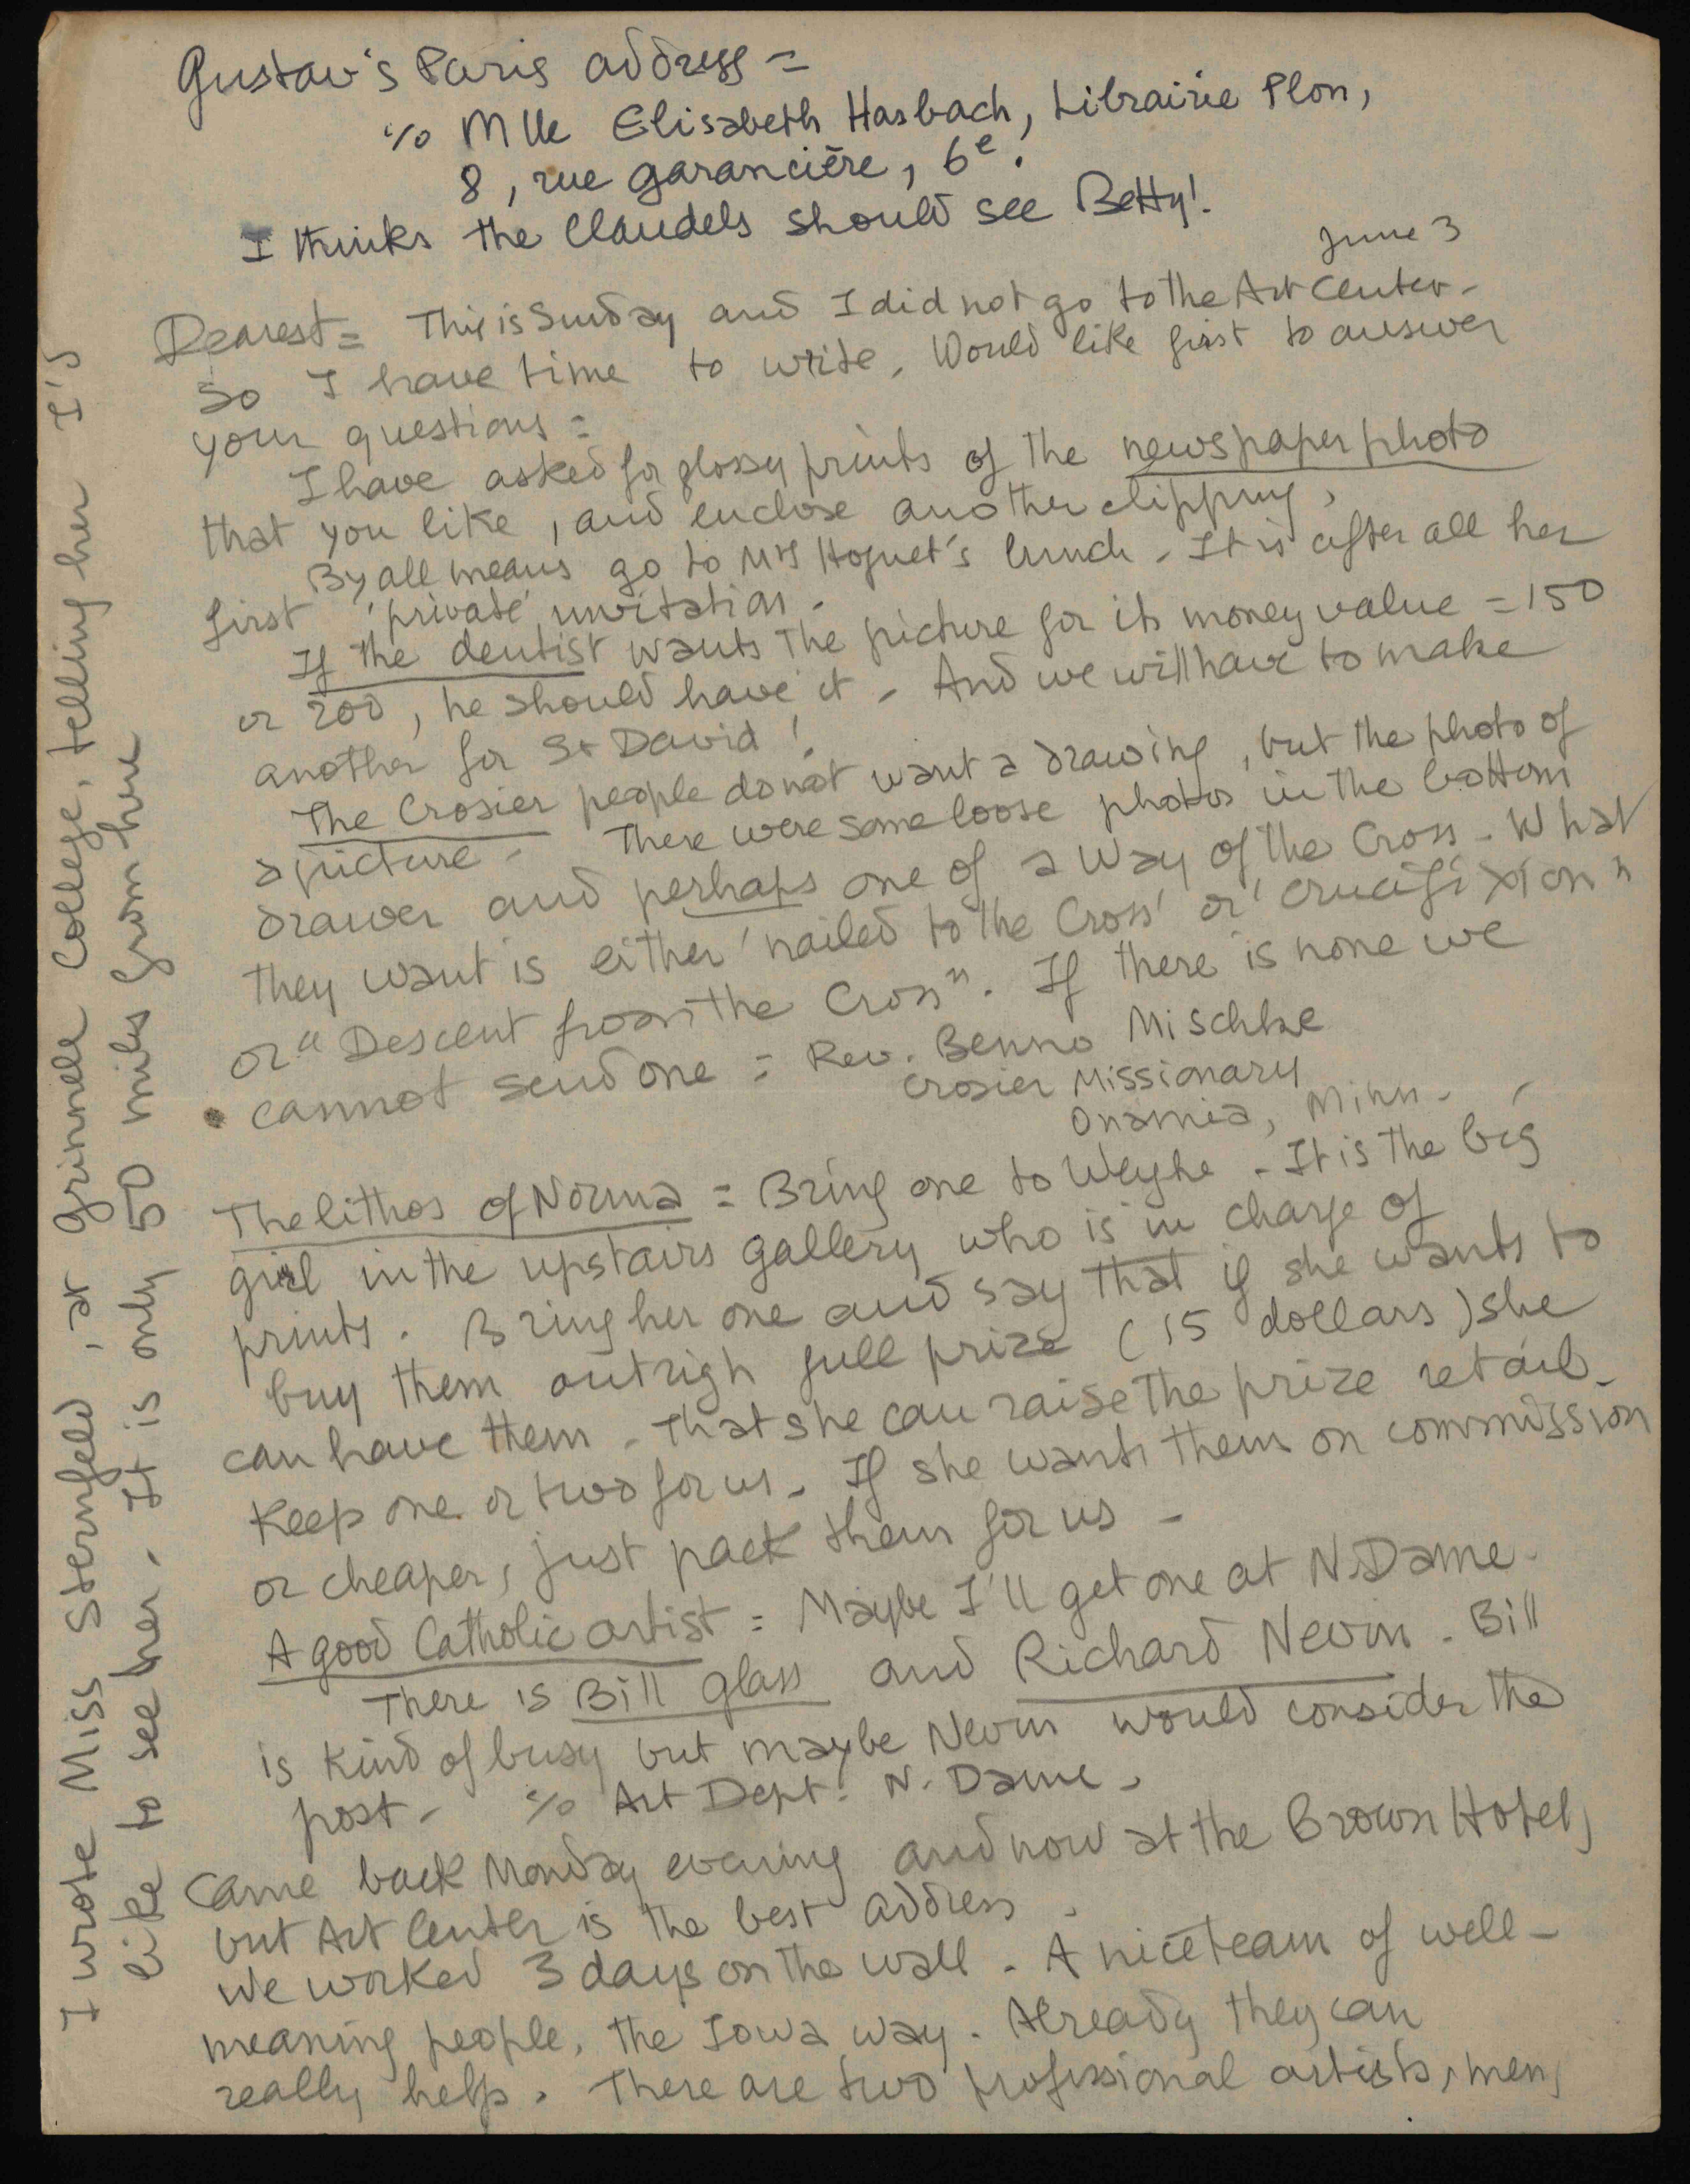 Gustav's Paris address =
℅ Mlle Elisabeth Hasbach, Librairie Plon,
8, rue Garancière, 6e.
I thinks the Claudels should see Betty!
June 3
Dearest = This is Sunday and I did not go to the Art Center -
So I have time to write. Would like first to answer
your questions =
I have asked for glossy prints of the newspaper photo
that you like, and enclose another clipping,
By all means go to Mrs Hoguet's lunch - It is after all her
first 'private' invitation -
If the dentist wants the picture for its money value = 150
or 200, he should have it - And we will have to make
another for St David!
The Crosier people do not want a drawing, but the photo of
a picture - There were some loose photos in the bottom
drawer and perhaps one of a Way of the Cross - What
they want is either 'nailed to the Cross' or 'crucifixion"
or "Descent from the Cross". If there is none we
cannot send one = Rev. Benno Mischke
Crosier Missionary
Onamia, Minn -
The lithos of Norma = Bring one to Weyhe - It is the big
girl in the upstairs gallery who is in charge of
prints. Bring her one and say that if she wants to
buy them outrigh full prize (15 dollars) she
can have them - That she can raise the prize retail -
Keep one or two for us - If she wants them on commission
or cheaper, just pack them for us -
A good Catholic artist = Maybe I'll get one at N. Dame -
There is Bill Glass and Richard Nevin - Bill
is kind of busy but maybe Nevin would consider the
post - ℅ Art Dept. N. Dame -
Came back Monday evening and now at the Brown Hotel,
but Art Center is the best address -
We worked 3 days on the wall - A nice team of well-
meaning people, the Iowa way. Already they can
really help. There are two professional artists, men,
I wrote Miss Sternfeld, at Grinnell College, telling her I'd
like to see her. It is only 50 miles from here